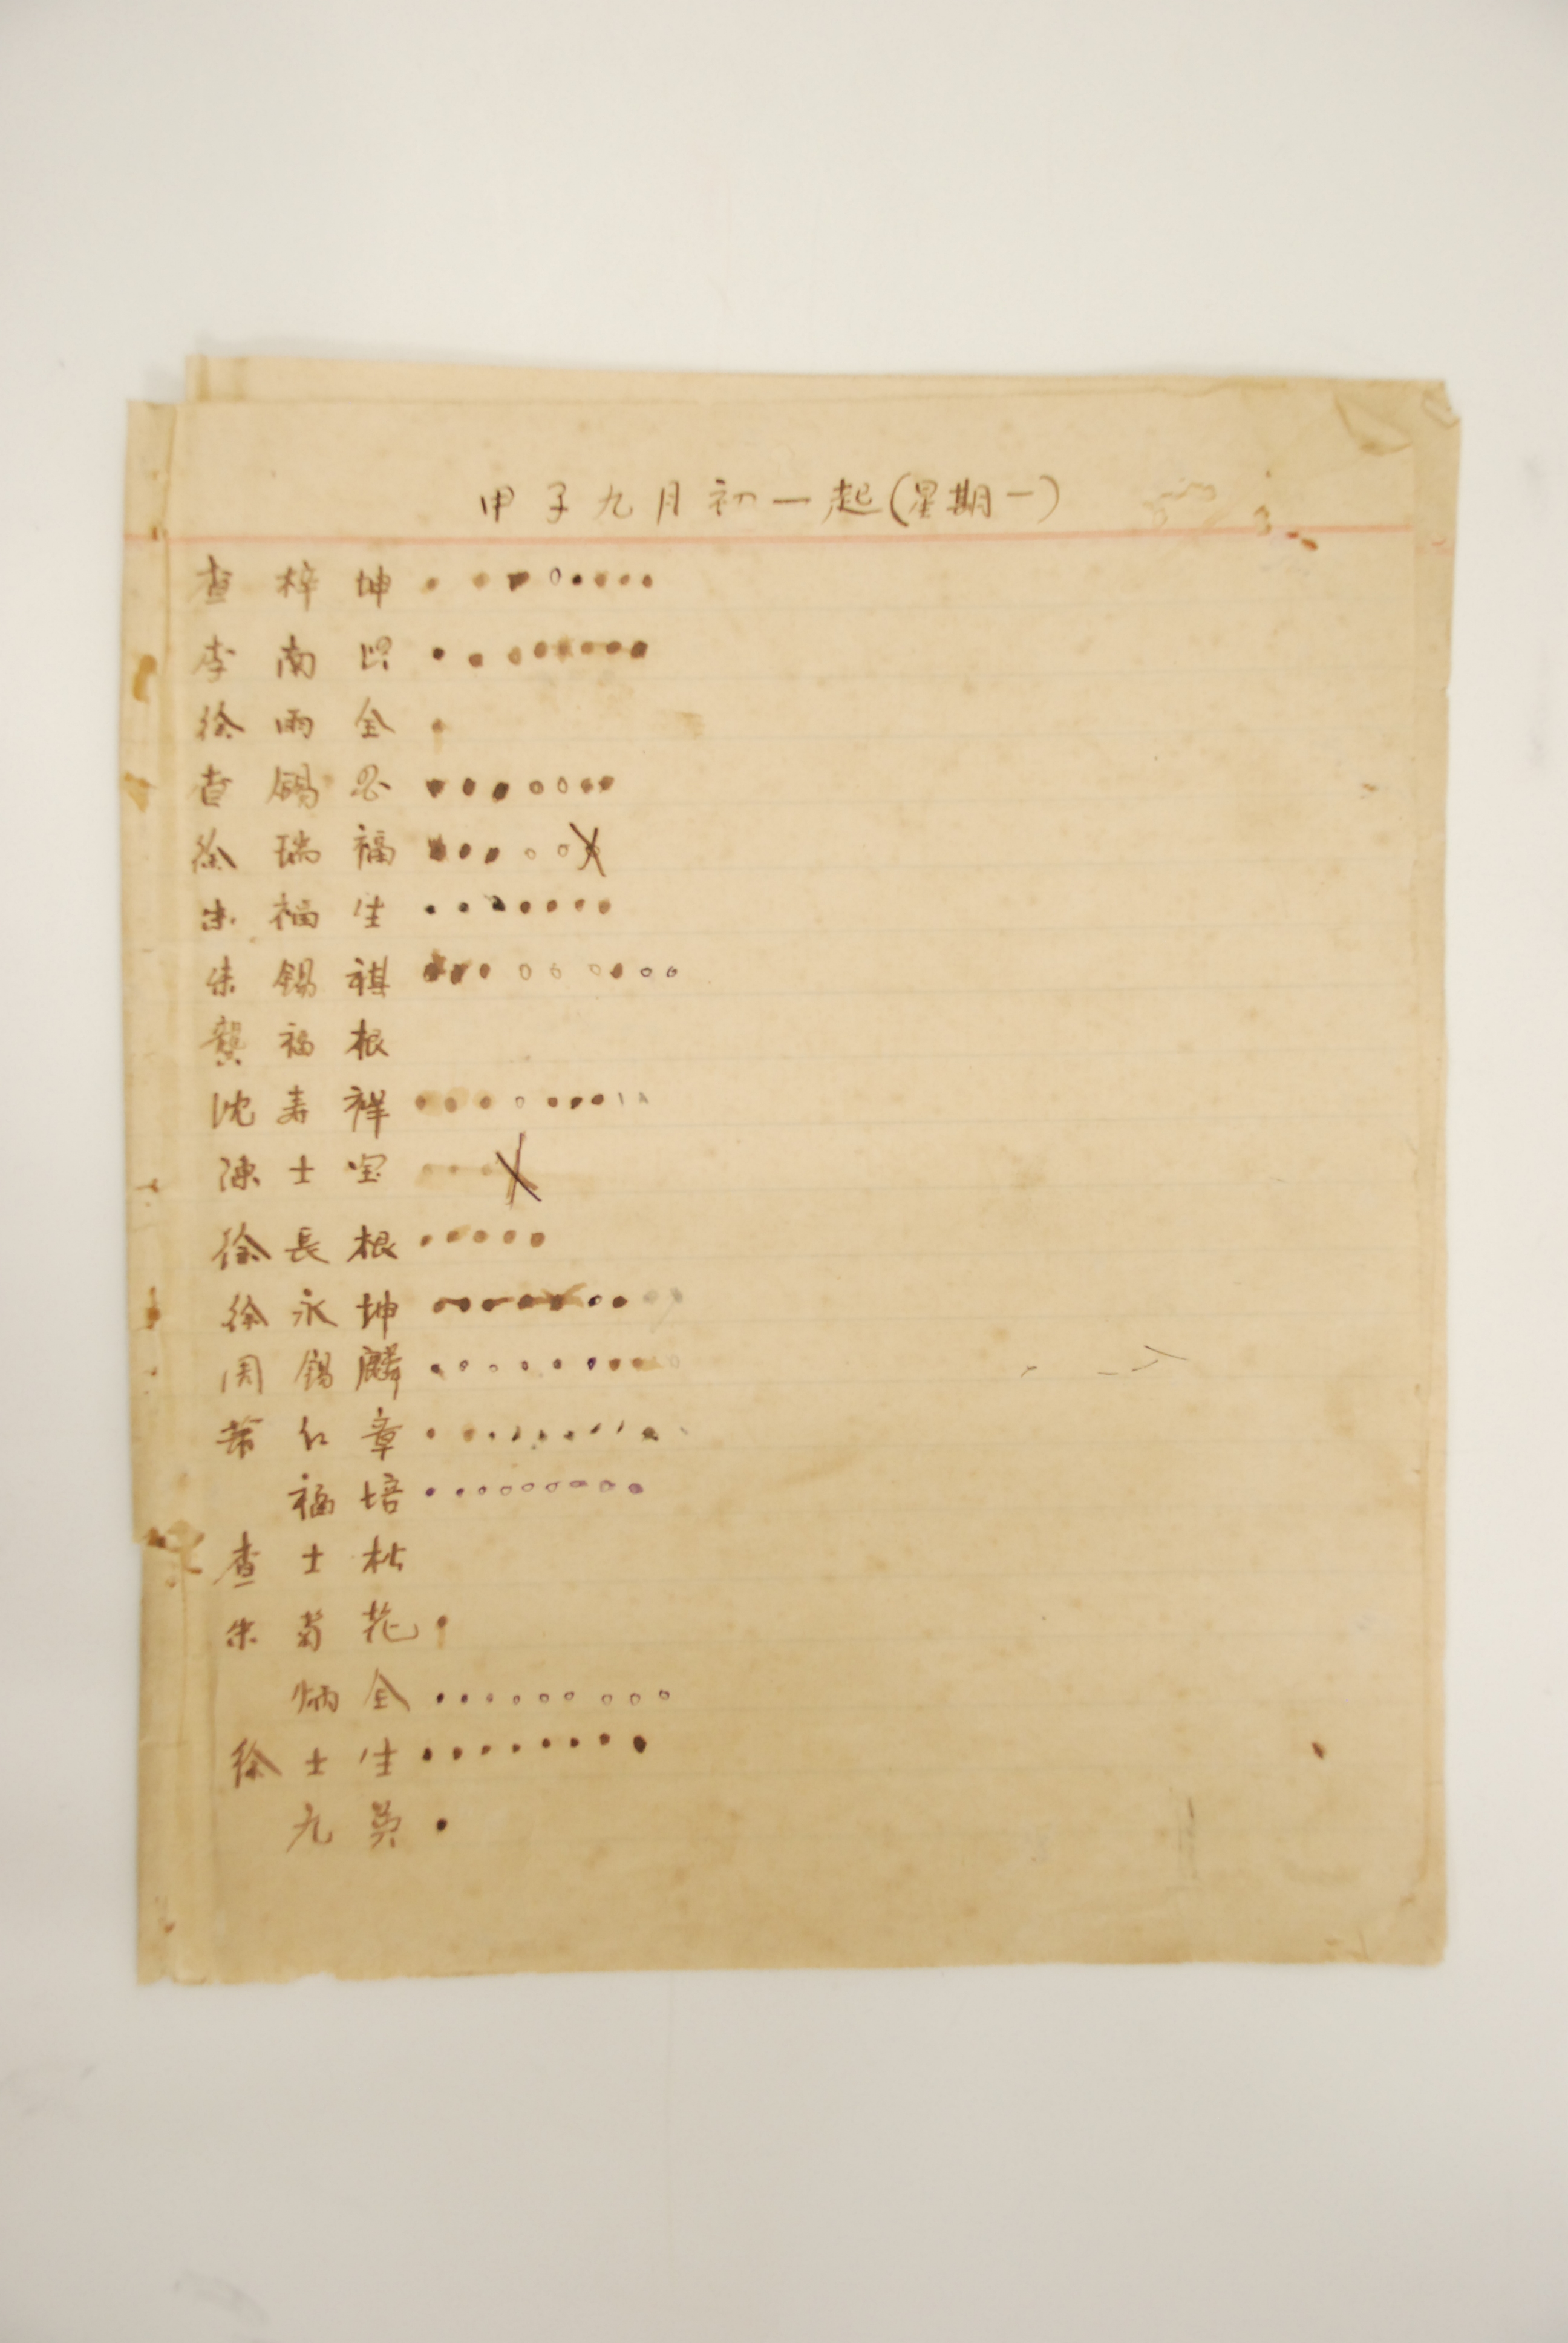 甲子九月初一起(星期一)
查梓坤
李南
徐雨全
查錫
徐瑞福
朱福生
朱錫祺
龔福根
沈寿祥
陳士宝
徐長根
徐永坤
周錫麟
仁章
福培
查士松
朱菊花
炳全
徐士生
九英